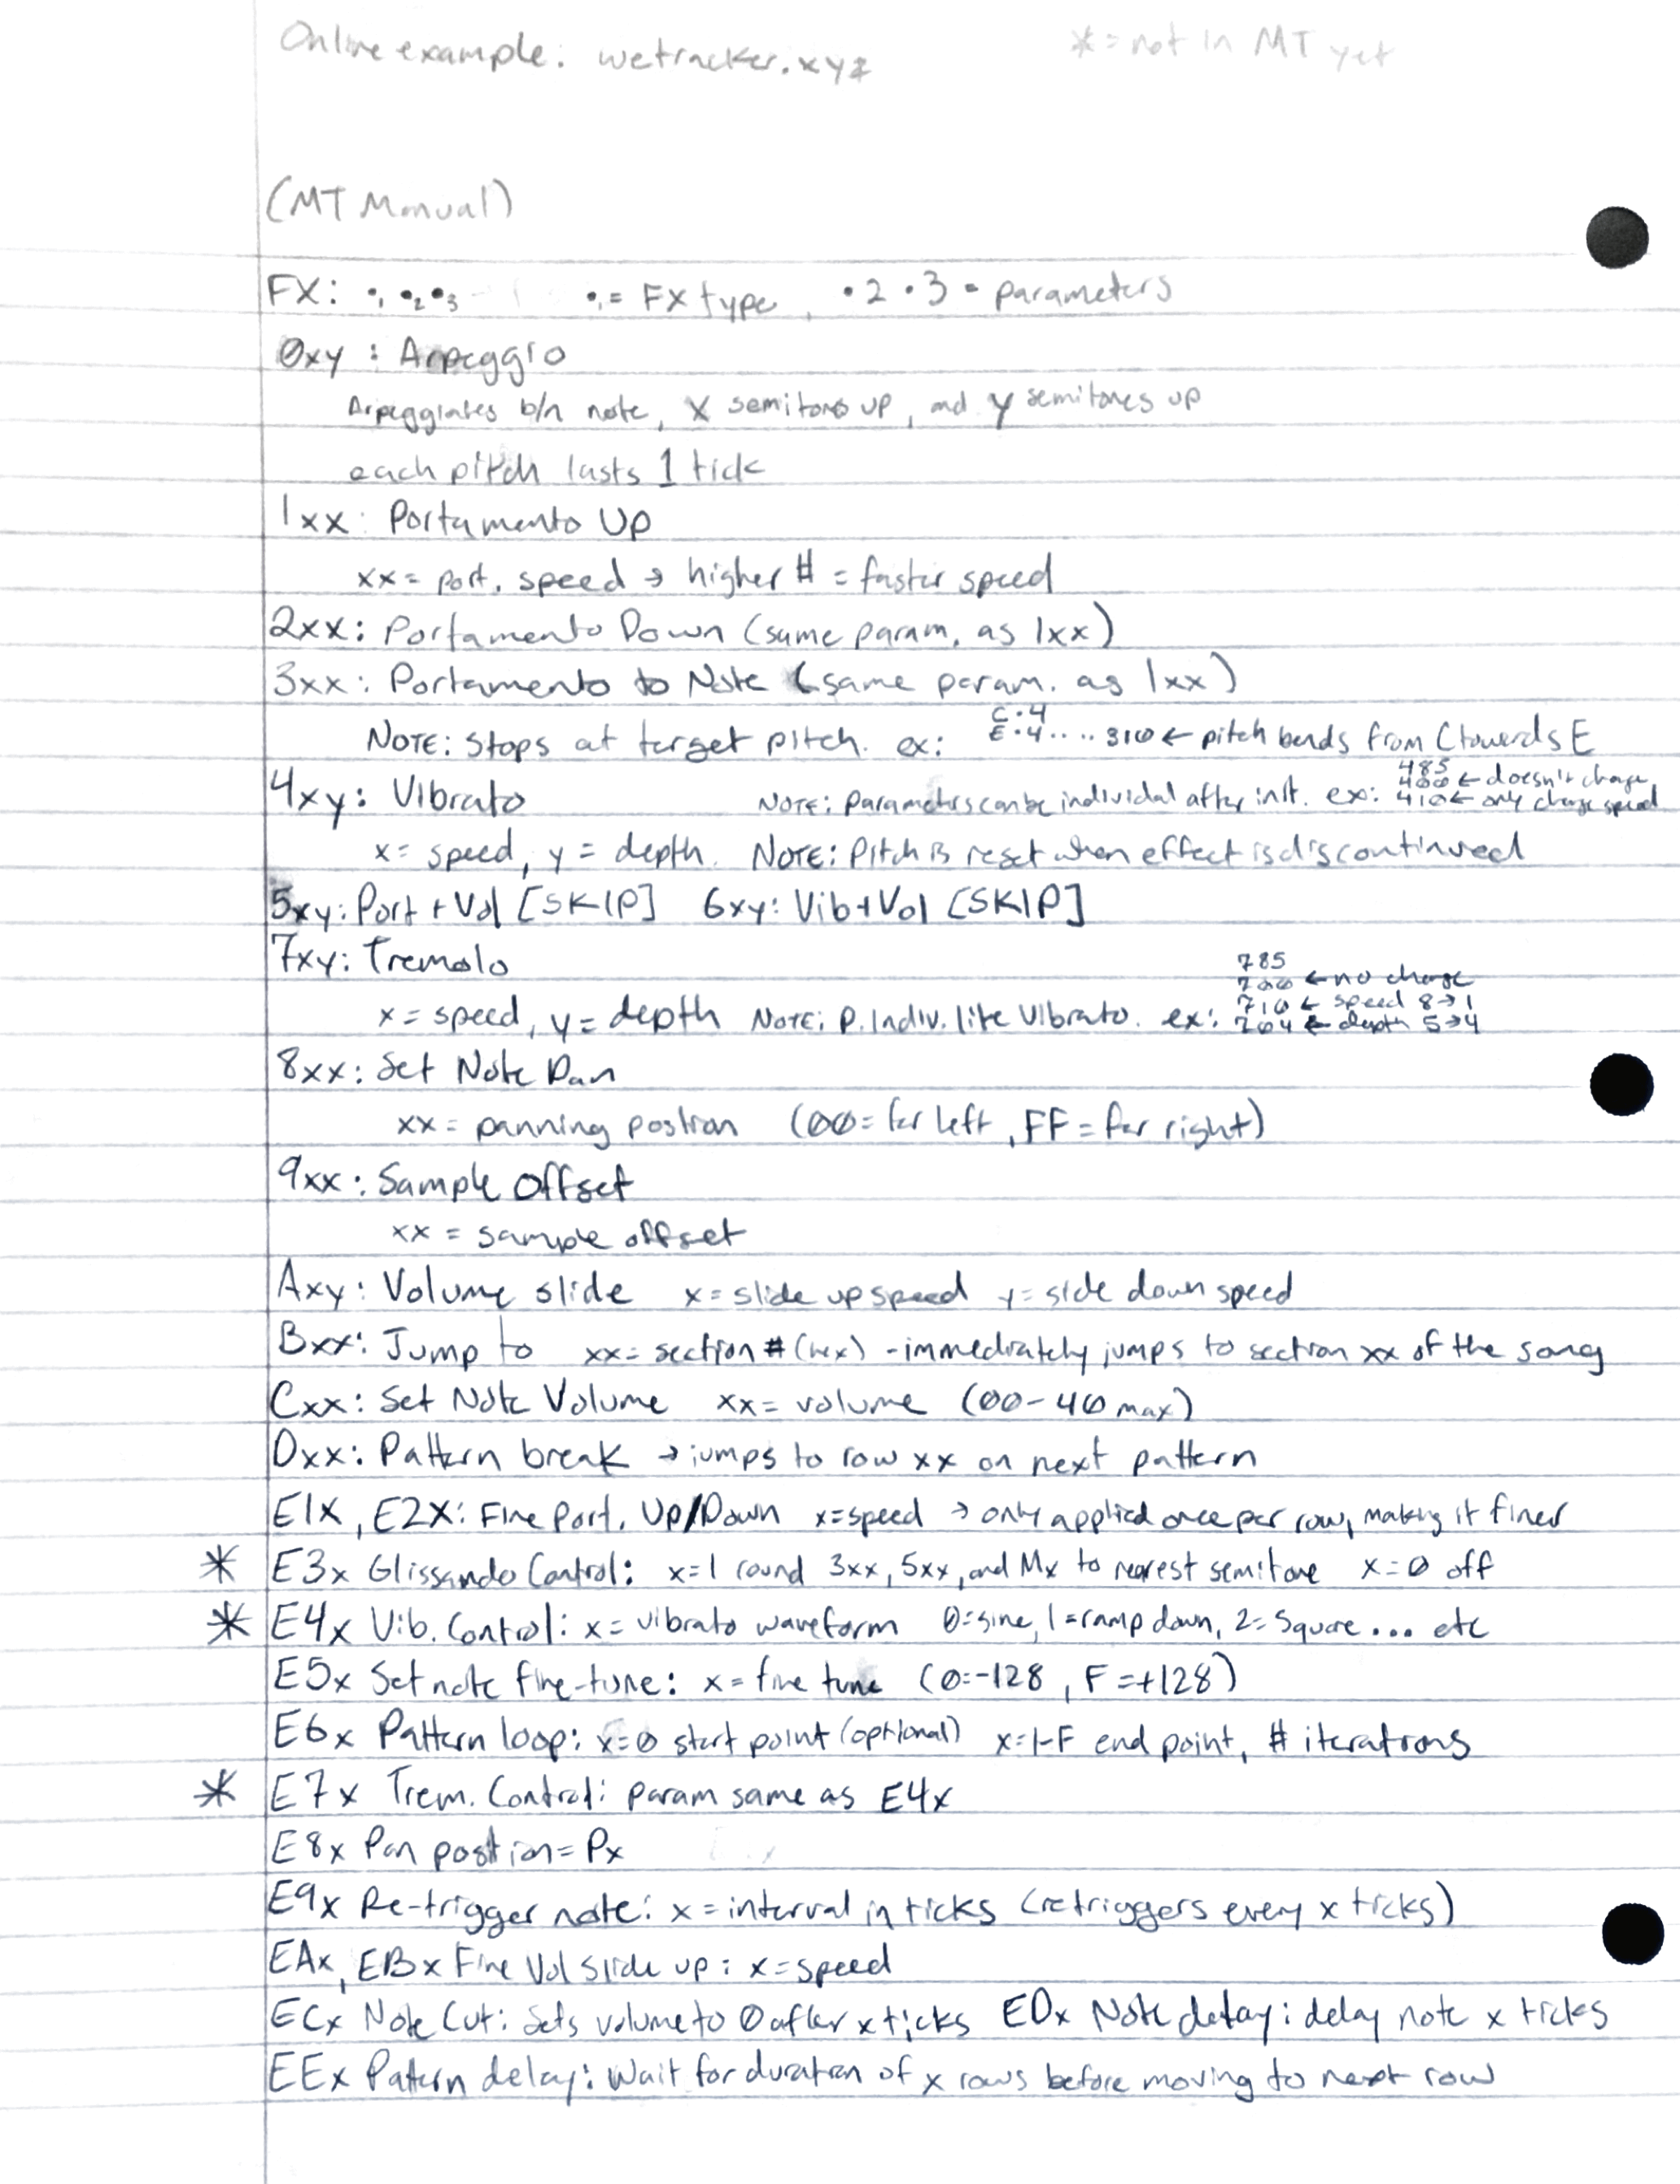 Online example: wetracker.xyz    * = not in MT yet
(MT Manual)
FX: •₁ •₂ •₃    •₁ = FX type, •2 •3 = parameters
0xy : Arpeggio
Arpeggiates b/n note, X semitones up, and y semitones up
each pitch lasts 1 tick
1xx: Portamento Up
xx = port. speed → higher # = faster speed
2xx: Portamento Down (same param. as 1xx)
3xx: Portamento to Note (same param. as 1xx)
C•4
NOTE: Stops at target pitch. ex: E•4.... 310 ← pitch bends from C towards E
485
400 ← doesn't change
4xy: Vibrato    NOTE: Parameters can be individal after init. ex: 410 ← only change speed
x = speed, y = depth. NOTE: Pitch is reset when effect is discontinued
5xy: Port + Vol [SKIP]    6xy: Vib + Vol [SKIP]
7xy: Tremolo
785
700 ← no change
710 ← speed 8→1
x = speed, y = depth NOTE: P. Indiv. like Vibrato. ex: 704 ← depth 5→4
8xx: Set Note Pan
xx = panning position (00 = far left, FF = far right)
9xx: Sample Offset
xx = sample offset
Axy: Volume slide    x = slide up speed    y = slide down speed
Bxx: Jump to    xx = section # (hex) - immediately jumps to section xx of the song
Cxx: Set Note Volume    xx = volume (00-40 max)
Dxx: Pattern break → jumps to row xx on next pattern
E1x, E2x: Fine Port. Up/Down    x = speed → only applied once per row, making it finer
* E3x Glissando Control: x=1 round 3xx, 5xx, and Mx to nearest semitone    x=0 off
* E4x Vib. Control: x = vibrato waveform    0=sine, 1=ramp down, 2=Square... etc
E5x Set note fine-tune: x = fine tune (0=-128, F=+128)
E6x Pattern loop: x=0 start point (optional)    x=1-F end point, # iterations
* E7x Trem. Control: param same as E4x
E8x Pan position = Px
E9x Re-trigger note: x = interval in ticks (retriggers every x ticks)
EAx, EBx Fine Vol slide up: x = speed
ECx Note Cut: Sets volume to 0 after x ticks    EDx Note delay: delay note x ticks
EEx Pattern delay: Wait for duration of x rows before moving to next row